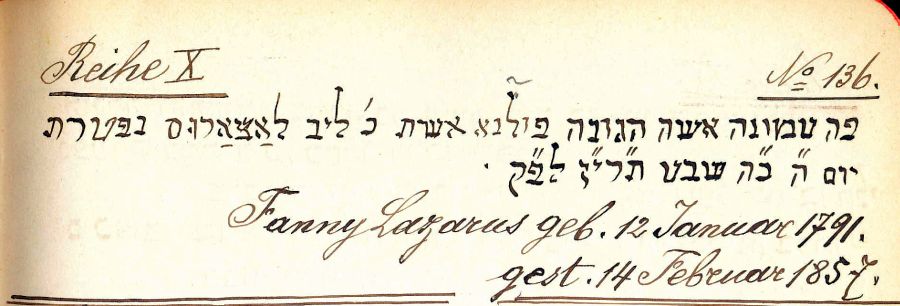 Reihe X
№ 136.
פה טמונה אשה הגונה אשת כ' ליב לאַצאַרוס נפטרת
יום ה" כ"ה שבט תרי"ז לפ"ק.
Fanny Lazarus geb. 12 Januar 1791.
gest. 14 Februar 1857.